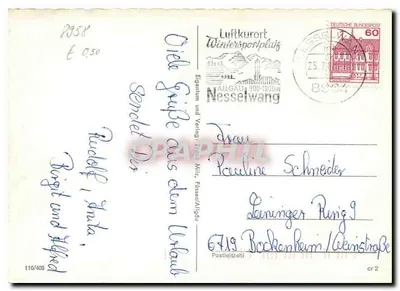 8958
£ 0,50
Viele Grüße aus dem Urlaub
sendet Dir
Rudolf, Anita,
Birgit und Alfred
110/406
Eigentum und Verlag
Füssen/Allgäu
Luftkurort
Wintersportplatz
ALLGÄU
Nesselwang
DEUTSCHE BUNDESPOST
60
Frau
Pauline Schneider
Leininger Ring 9
6719 Bockenheim/Weinstraße
Postleitzahl
cr 2